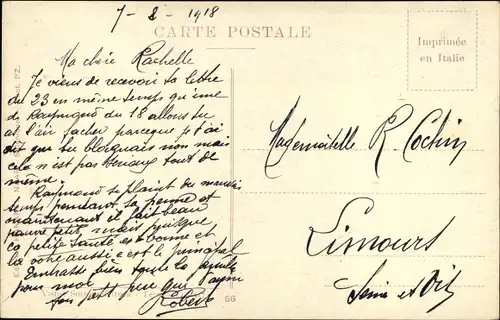 7-2-1918
CARTE POSTALE
Imprimée
en Italie
Ma chère Rachelle
Je viens de recevoir ta lettre
du 23 en même temps qu'une
de Raymond du 18 allons tu
as l'air fâcher parceque je t'ai
dit que tu blaguais non mais
cela n'est pas sérieux tout de
même.
Raymond se plaint du mauvais
temps pendant sa perme et
maintenant il fait beau
pauvre petit, mais puisque
sa petite santé est bonne et
la votre aussi c'est le principal
Embrasse bien toute la famille
pour moi
ton petit
Robert
56
Mademoiselle R. Cochin
Limours
Seine et Oise